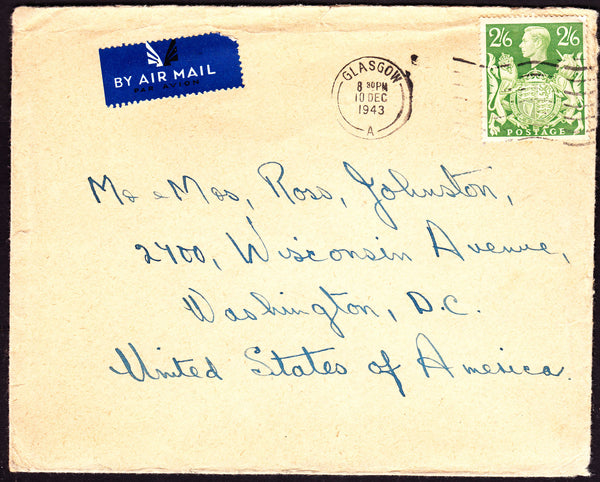 BY AIR MAIL
PAR AVION
GLASGOW
8 30PM
10 DEC
1943
A
2/6 2/6
POSTAGE
Mr & Mrs, Ross, Johnston,
2400, Wisconsin Avenue,
Washington, D.C.
United States of America.